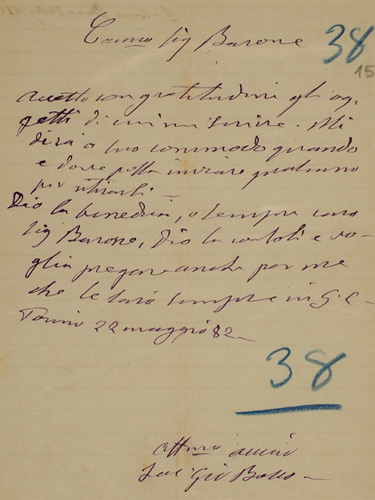 Car.mo Sig Barone
38
15
Accetto con gratitudine gli og
getti di cui mi scrive. Mi
dirà a suo commodo quando
e dove possa inviare qualcuno
per ritirarli -
Dio la benedica, o sempre caro
Sig Barone, Dio la consoli e vo-
glia pregare anche per me
che le sarò sempre in G. C.
Torino 22 maggio 82 -
38
aff.mo amico
Sac Gio Bosco -